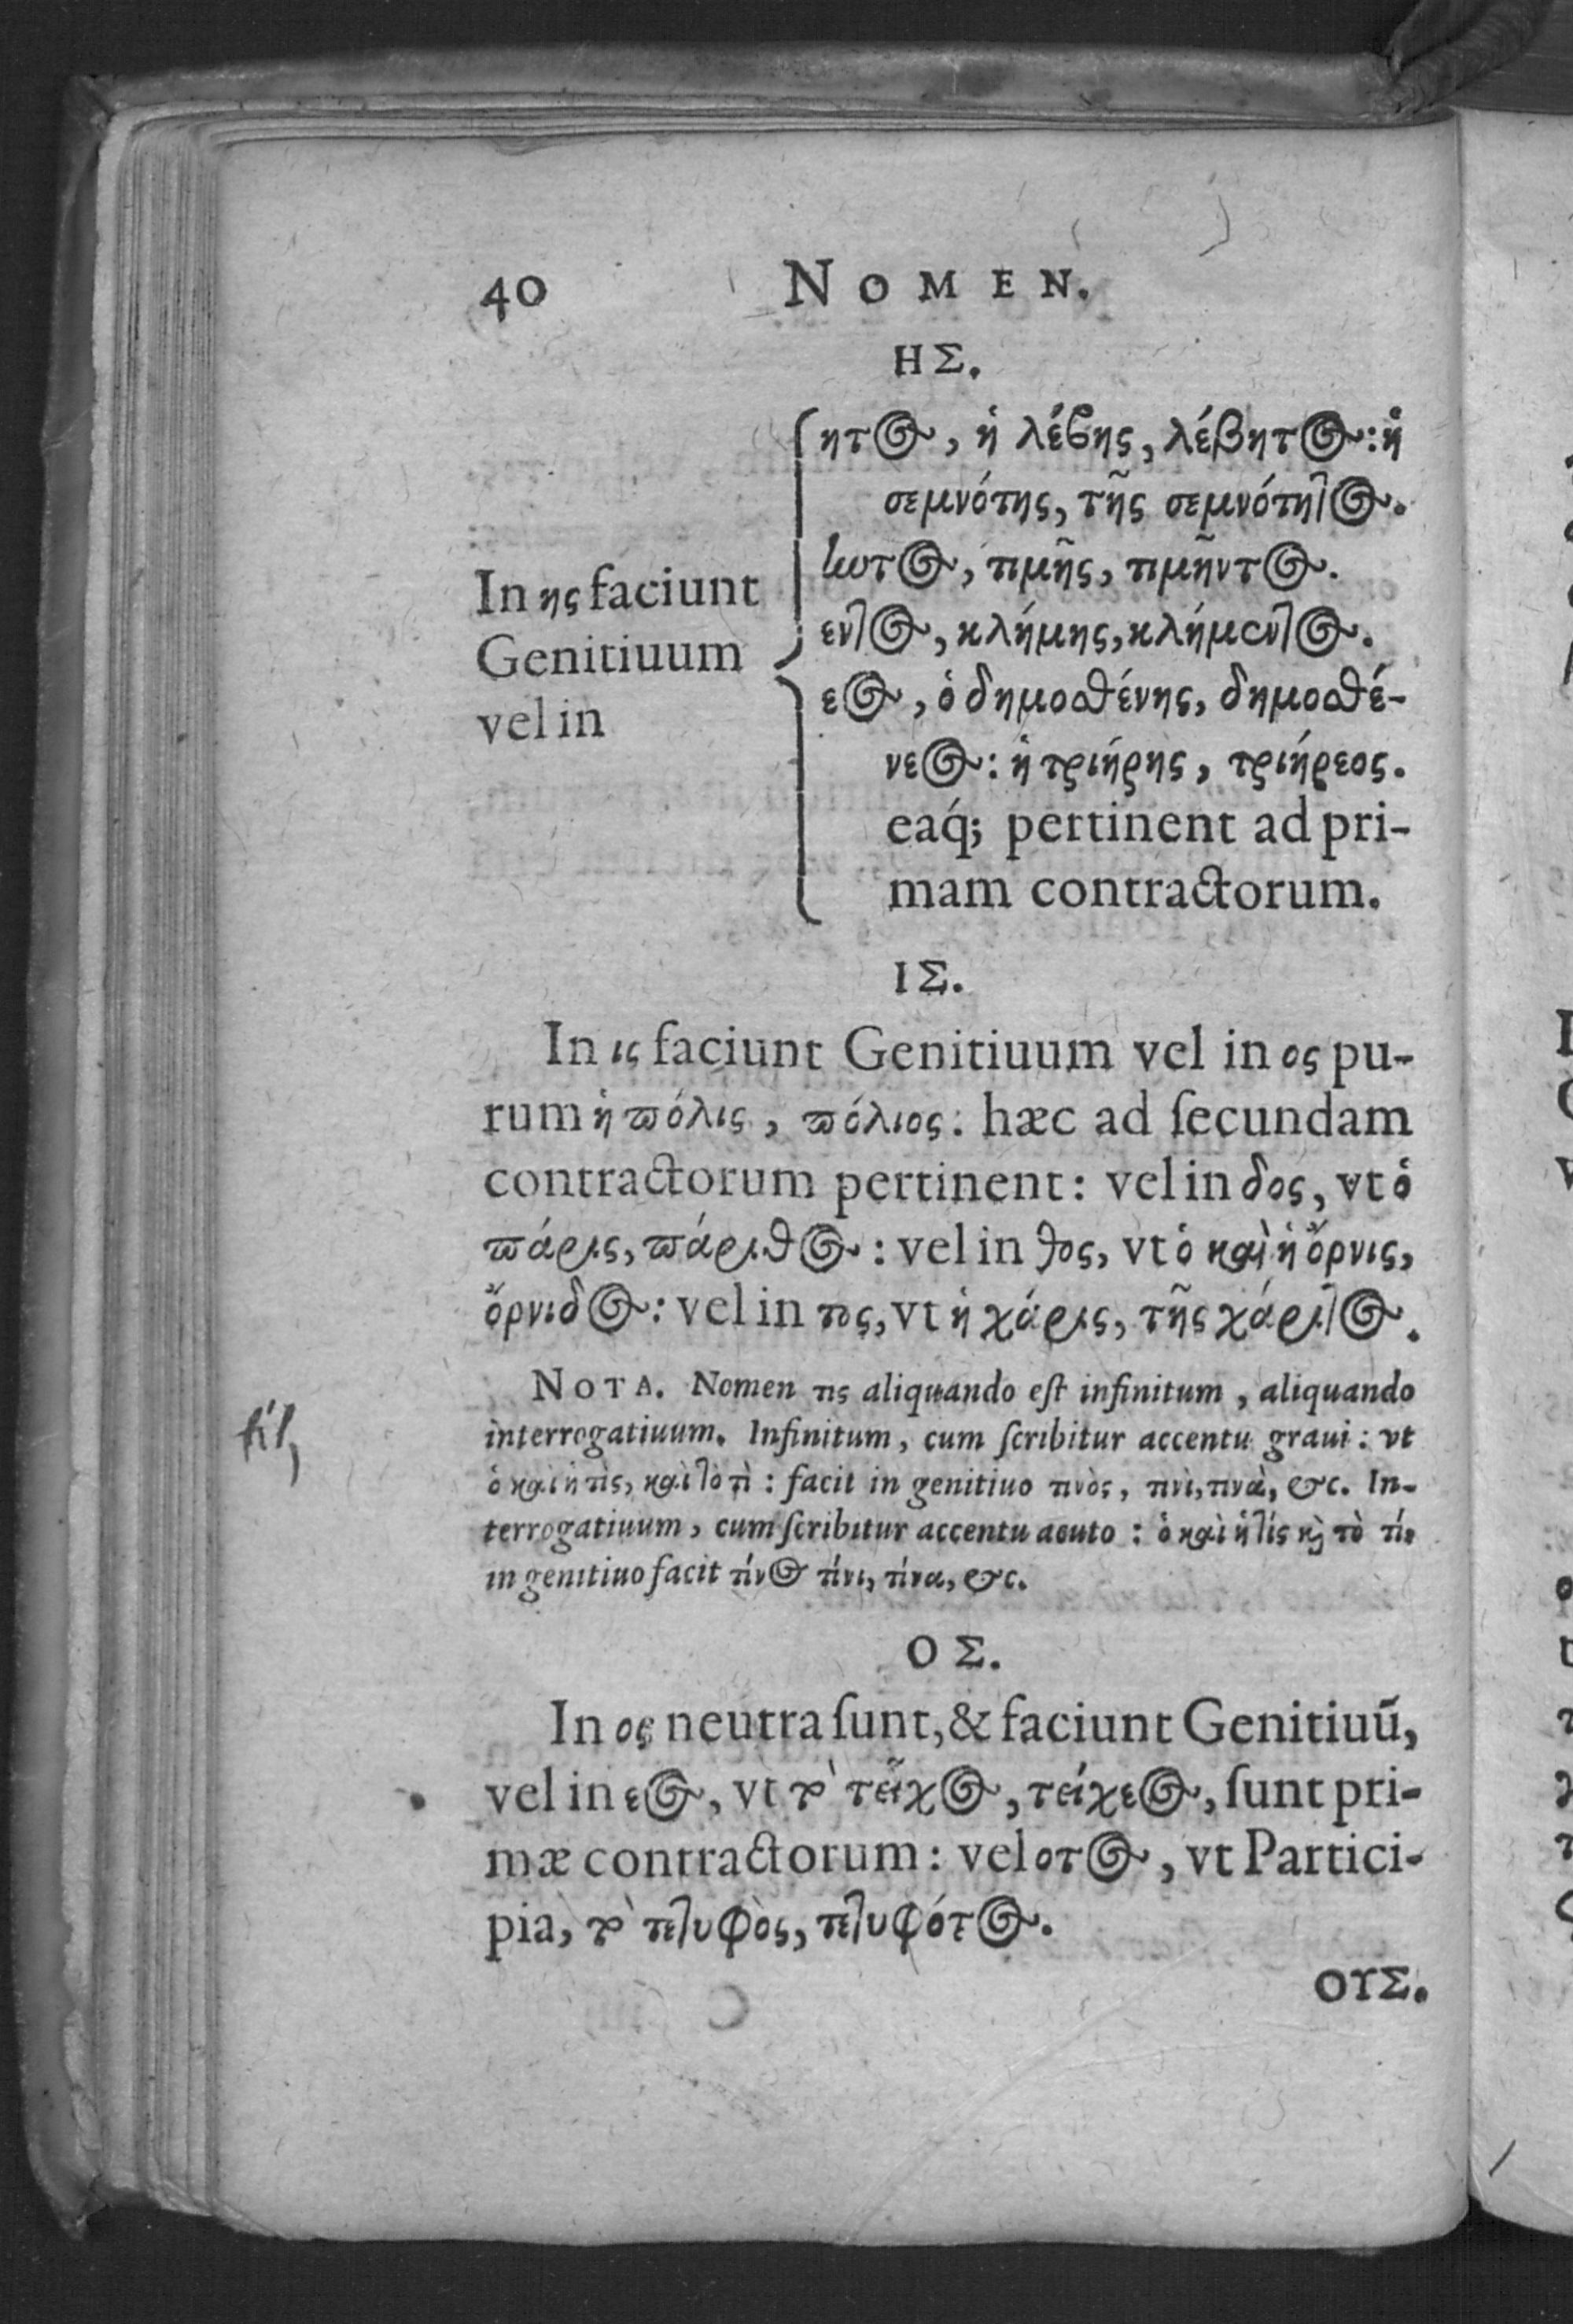 40 NOMEN.
ΗΣ.
ητος, ἡ λέβης, λέβητος: ἡ
σεμνότης, τῆς σεμνότητος.
ηντος, τιμῆς, τιμῆντος.
In ης faciunt
εντος, κλήμης, κλήμεντος.
Genitiuum
εος, ὁ δημοσθένης, δημοσθέ-
vel in
νεος: ἡ τριήρης, τριήρεος.
eaq́; pertinent ad pri-
mam contractorum.
ΙΣ.
In ις faciunt Genitiuum vel in ος pu-
rum ἡ πόλις, πόλιος: hæc ad ſecundam
contractorum pertinent: vel in δος, vt ὁ
πάρις, πάριθος: vel in θος, vt ὁ καὶ ἡ ὄρνις,
ὄρνιδος: vel in τος, vt ἡ χάρις, τῆς χάριτος.
NOTA. Nomen τις aliquando eſt infinitum, aliquando
interrogatiuum. Infinitum, cum ſcribitur accentu graui: vt
ὁ καὶ ἡ τὶς, καὶ τὸ τὶ: facit in genitiuo τινὸς, τινὶ, τινὰ, &c. In-
terrogatiuum, cum ſcribitur accentu acuto: ὁ καὶ ἡ τίς καὶ τὸ τί,
in genitiuo facit τίνος τίνι, τίνα, &c.
ΟΣ.
In ος neutra ſunt, & faciunt Genitiuū,
vel in εος, vt τὸ τεῖχος, τείχεος, ſunt pri-
mæ contractorum: vel οτος, vt Partici-
pia, τὸ τετυφὸς, τετυφότος.
ΟΥΣ.